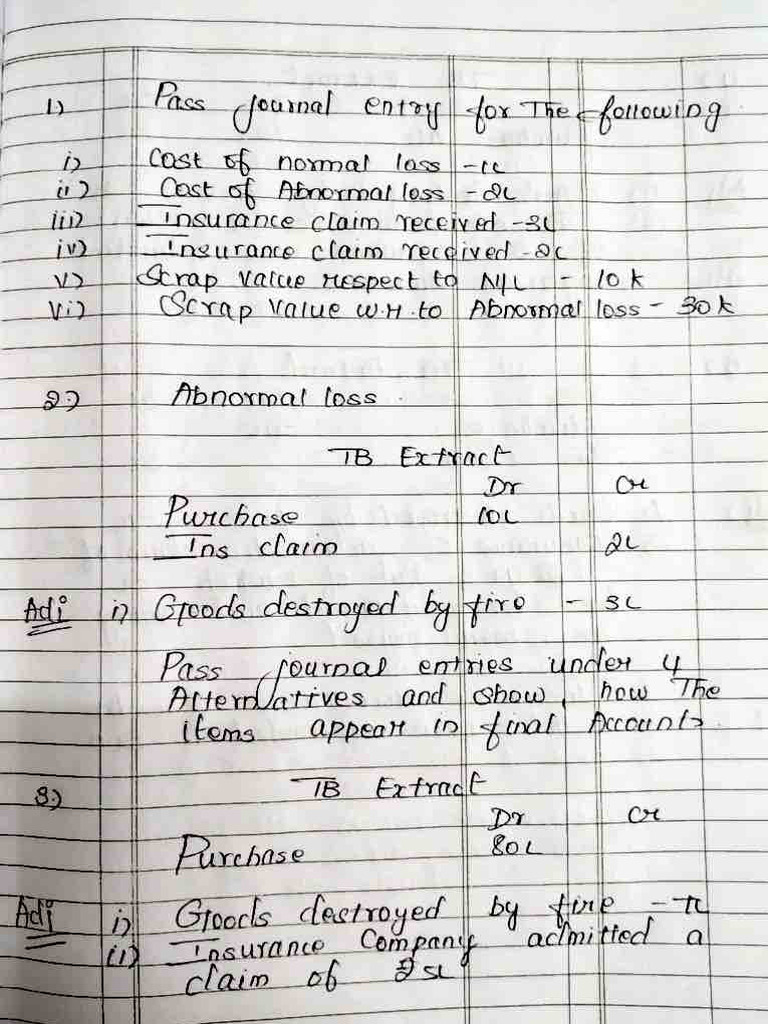 1) Pass Journal entry for The following
i) Cost of normal loss - 1L
ii) Cost of Abnormal loss - 2L
iii) Insurance claim received - 3L
iv) Insurance claim received - 2L
v) Scrap value respect to N/L - 10 k
vi) Scrap value w.r.to Abnormal loss - 30 k
2) Abnormal loss.
TB Extract
Dr Cr
Purchase 10L
Ins claim 2L
Adj i) Goods destroyed by fire - 3L
Pass journal entries under 4
Alternatives and show, how The
items appear in final Accounts.
3) TB Extract
Dr Cr
Purchase 80L
Adj i) Goods destroyed by fire -
ii) Insurance Company admitted a
claim of